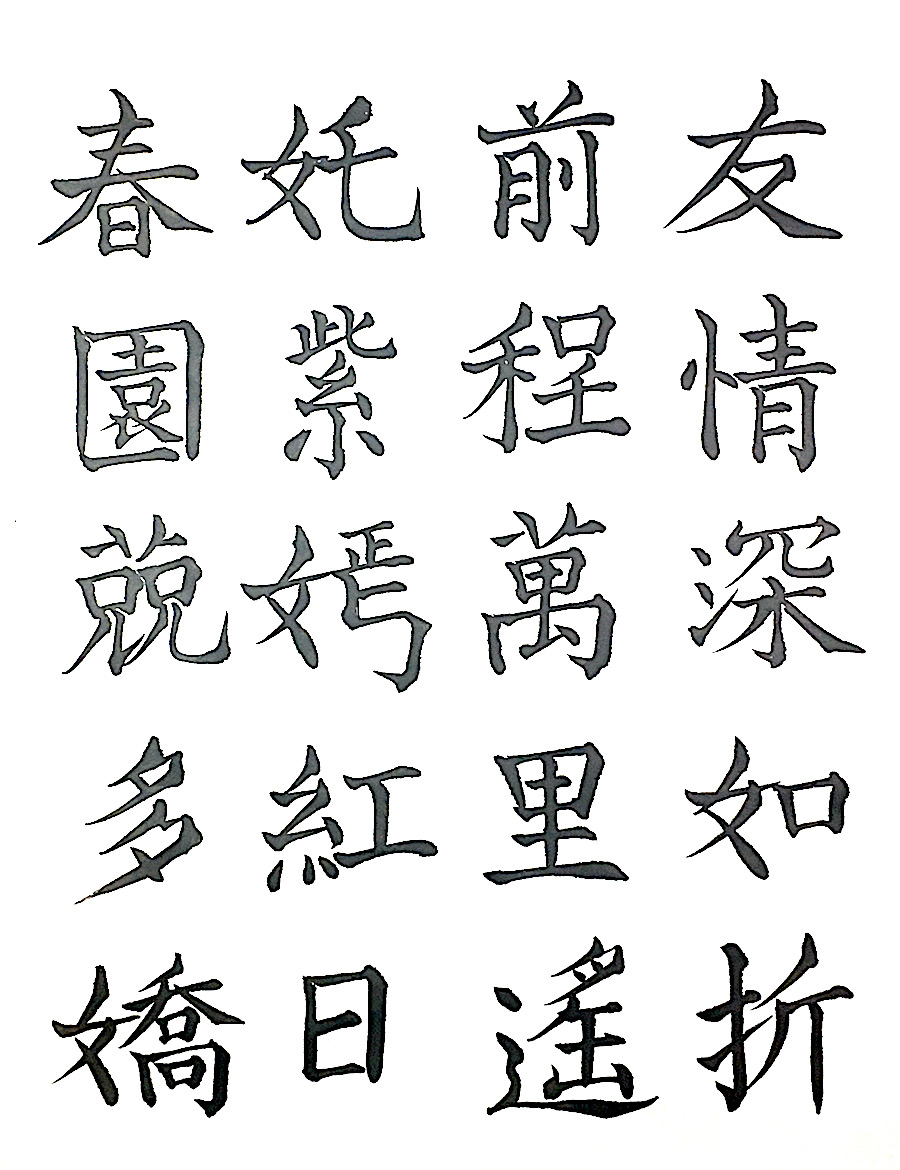 友情深如折
前程萬里遙
奼紫嫣紅日
春園競多嬌